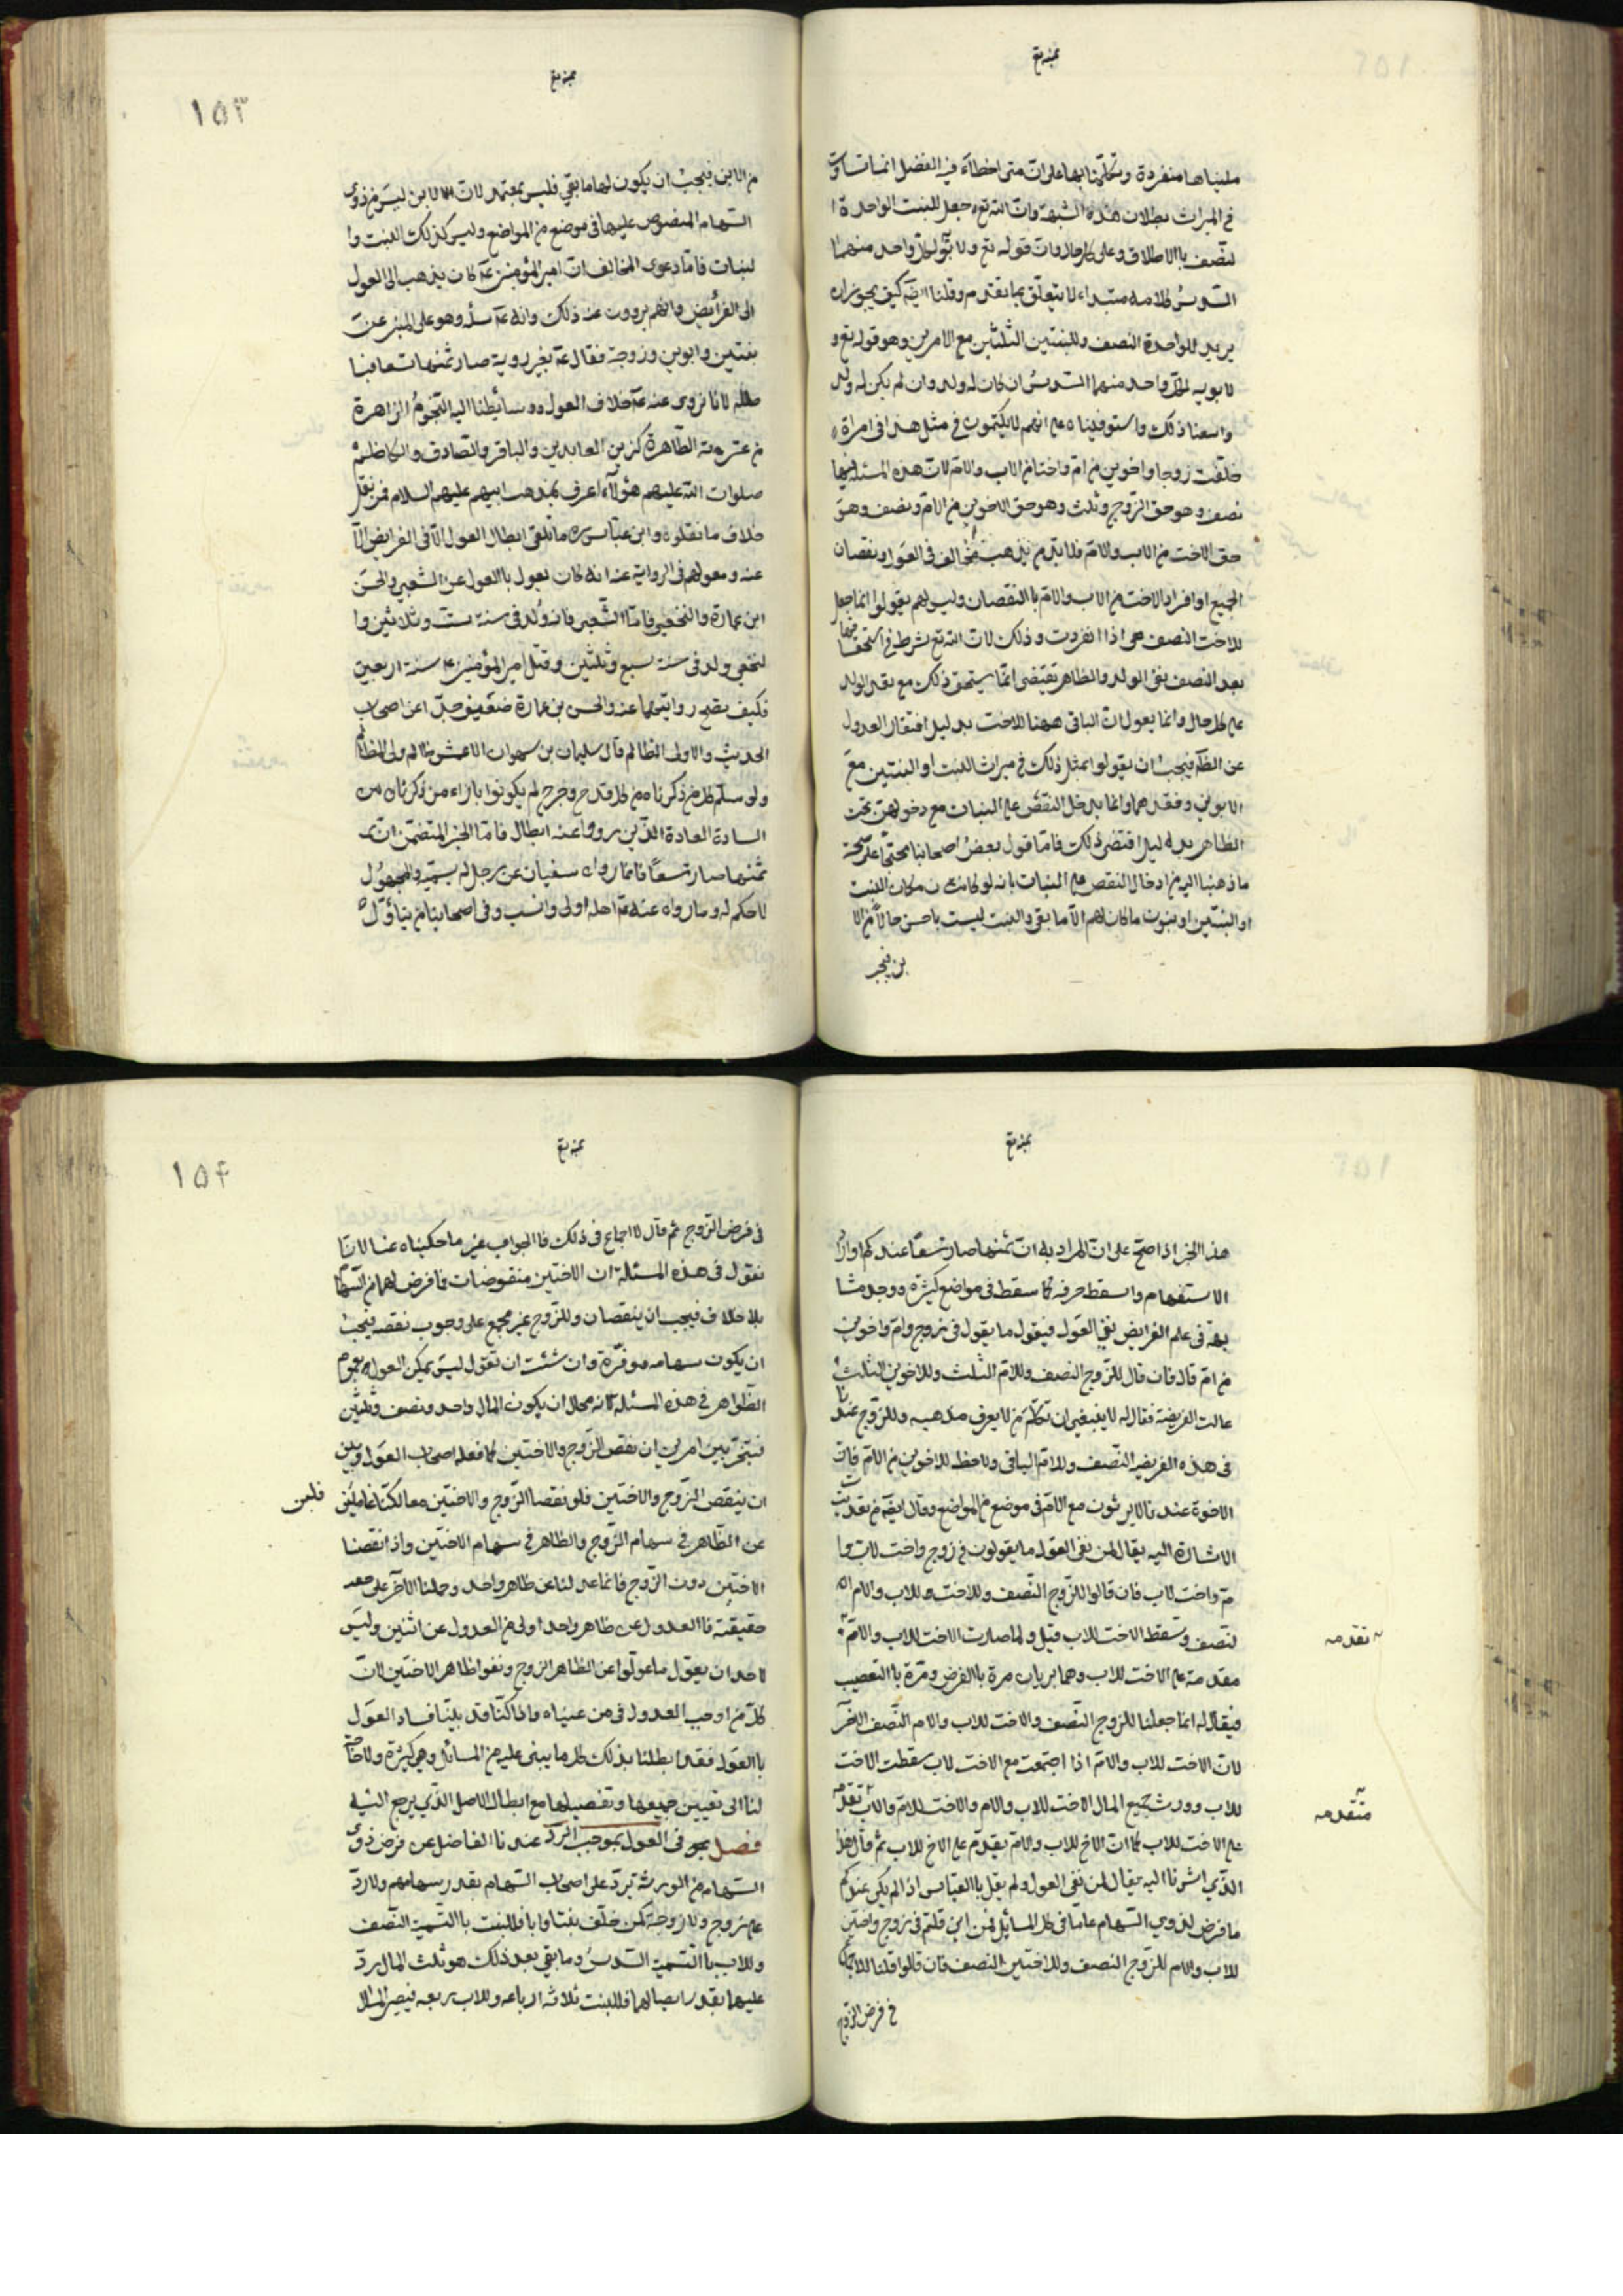 بمنه تع
عليناها منفردة وتكلمنا بها على ان متى اخطاء في الفضل انما تساوت
في الميراث بطلان هذه الشبهة وان الله تع جعل للبنت الواحدة ا
لنصف باالاطلاق وعلى كل حال وان قوله تع ولابويه لكل واحد منهما
السدس كلام مبتداء لا يتعلق بما تقدم وقلنا ايضا كيف يجوز ان
يريد للواحدة النصف وللبنتين الثلثين مع الامرين وهو قوله تع و
لابويه لكل واحد منهما السدس ان كان له ولد وان لم يكن له ولد
واسعنا ذلك واستوفيناه على انهم لا يكتمون في مثل هذا في امراة
خلفت زوجا واخوين من ام واختا من الاب والام لان هذه المسئلة فيها
نصف وهو حق الزوج وثلث وهو حق الاخوين من الام ونصف وهو
حق الاخت من الاب والام فلا بد من يذهب مخالف في العول ونقصان
الجميع او افراد الاخت من الاب والام باالنقصان وليس لهم يقولوا انما جعل
للاخت النصف اذا انفردت وذلك لان الله تع شرط في استحقاقها
بعد النصف نفى الولد والظاهر يقتضى انها يستحق ذلك مع فقد الولد
على كل حال وانما يعول ان الباقى ههنا للاخت بدليل اقتضى العدول
عن الظاهر فيجب ان يقولوا بمثل ذلك في ميراث البنت او البنتين مع
الابوين وفقدهما وانما يدخل النقص على البنات مع دخولهن تحت
الظاهر بدليل اقتضى ذلك فاما قول بعض اصحابنا محتجا على صحة
ما ذهبنا اليه من ادخال النقص على البنات بانه لو كانت مكان البنت
او البنتين ابن او بنون ما كان لهم الا ما بقى والبنت ليست باحسن حالا من الا
بن فيجب
بمنه تع
۱۵۳
من الابن فيجب ان يكون لها ما بقي فليس بمعتمد لان الابن ليس من ذوى
السهام المنصوص عليها في موضع من المواضع وليس كذلك البنت وا
لبنات فاما دعوى المخالف ان امير المؤمنين ع كان يذهب الى العول
الى الفرائض وانهم يروون عنه ذلك وانه ع سئل وهو على المنبر عن
بنتين وابوين وزوجة فقال ع بغير روية صار ثمنها تسعا فبا
طل لانا نروى عنه ع خلاف العول ووسائطنا اليه النجوم الزاهرة
من عترته الطاهرة كزين العابدين والباقر والصادق والكاظم
صلوات الله عليهم هؤلاء اعرف بمذهب ابيهم عليهم السلام فمن نقل
خلاف ما نقلوه وابن عباس ره ما تلقى ابطال العول الا في الفرايض الا
عنه ومعولهم في الرواية عنه انه كان يعول باالعول عن الشعبي والحسن
ابن عمارة والنخعي فاما الشعبي فانه ولد في سنة ست وثلاثين وا
لنخعي ولد في سنة سبع وثلثين وقتل امير المؤمنين ع سنة اربعين
فكيف يصح روايتهما عنه والحسن بن عمارة ضعيف جدا عن اصحاب
الحديث والاولى الظالم قال سليمان بن سهران الاعمش ظالم ولى المظالم
ولو سلم كل من ذكرناه من كل قدح وجرح لم يكونوا بازاء من ذكرناه من
السادة العادة الذين رووا عنه ابطال فاما الخبر المتضمن ان
ثمنها صار تسعا فانما رواه سفيان عن رجل لم يسميه والمجهول
لا حكم له وما رواه عنه اهله اولى وانسب وفى اصحابنا من يتاول
بمنه تع
هذا الخبر اذا صح على ان المراد به ان ثمنها صار تسعا عندكم او اراد
الاستفهام واسقط حرفه كما سقط في مواضع كثيرة ووجدت
في علم الفرايض نفى العول فيقول ما يقول في زوج وام واخوين
من ام قال فان قال للزوج النصف وللام الثلث وللاخوين الثلث
عالت الفريضة فقال له لا ينبغى ان تكلم من لا يعرف مذهبه وللزوج عندنا
في هذه الفريضة النصف وللام الباقى ولا حظ للاخوين من الام فان
الاخوة عندنا لا يرثون مع الام في موضع من المواضع وقال ايضا من تقدمت
الاشارة اليه يقال لمن نفى العول ما يقولون في زوج واخت لاب وا
م واخت لاب فان قالوا للزوج النصف وللاخت وللاب والام ا
لنصف وسقط الاخت للاب قيل ولما صارت الاخت للاب والام
مقدمة على الاخت للاب وهما يريان مرة باالفرض ومرة باالتعصيب
فيقال له انما جعلنا للزوج النصف والاخت للاب والام النصف الاخر
لان الاخت للاب والام اذا اجتمعت مع الاخت لاب سقطت الاخت
للاب وورث جميع المال الاخت للاب والام والاخت للام والاب تقدم
على الاخت للاب كما ان الاخ للاب والام يقدم على الاخ للاب ثم قال هذا
الذي اشرنا اليه يقال لمن نفى العول ولم يقل باالقياس اذا لم يكن عندكم
ما فرض لذوي السهام عاما في كل المسائل فمن اين قلتم في زوج واختين
للاب والام للزوج النصف وللاختين النصف فان قالوا قلنا للاجماع
في فرض الزوج
تقدمه
متقدمه
بمنه تع
۱۵۴
في فرض الزوج ثم قال لا اجماع في ذلك فاالجواب غير ما حكيناه عنا لانا
نقول في هذه المسئلة ان الاختين منقوضات فافرض لهما من السهام
بلا خلاف فيجب ان ينقصان وللزوج غير مجمع على وجوب نقصه فيجب
ان يكون سهامه موفرة وان شئت ان تقول ليس يمكن العول بعموم
الظواهر في هذه المسئلة كانه محال ان يكون المال واحد ونصف وثلثين
فنتخير بين امرين ان نقص الزوج والاختين كما فعله اصحاب العول وبين
ان ينقص الزوج والاختين فلو نقصنا الزوج والاختين معا لكنا عادلين
فلعن
عن الظاهر في سهام الزوج والظاهر في سهام الاختين واذا نقصنا
الاختين دون الزوج فانما عدلنا عن ظاهر واحد وحملنا الاخر على
حقيقته فاالعدول عن ظاهر واحد اولى من العدول عن اثنين وليس
لاحد ان يقول ما عولوا عن الظاهر الزوج ونفوا ظاهر الاختين لان
كل من اوجب العدول في من عيناه ولما كنا قد بينا فساد العول
باالعول فقد ابطلنا بذلك كل ما يبنى عليه من المسائل وهي كثيرة ولا حاجة
لنا الى تعيين جميعها وتفصيلها مع ابطال الاصل الذي يرجع اليه
فصل في العول بموجب الرد عندنا الفاضل عن فرض ذوى
السهام من الورثة تردد على اصحاب السهام بقدر سهامهم ولا رد
على زوج ولا زوجة كمن خلف بنتا وابا فللبنت باالتسمية النصف
وللاب باالتسمية السدس وما بقي بعد ذلك هو ثلث المال رد
عليهما بقدر انصبائهما فللبنت ثلاثة ارباعه وللاب ربعه فيصير المال